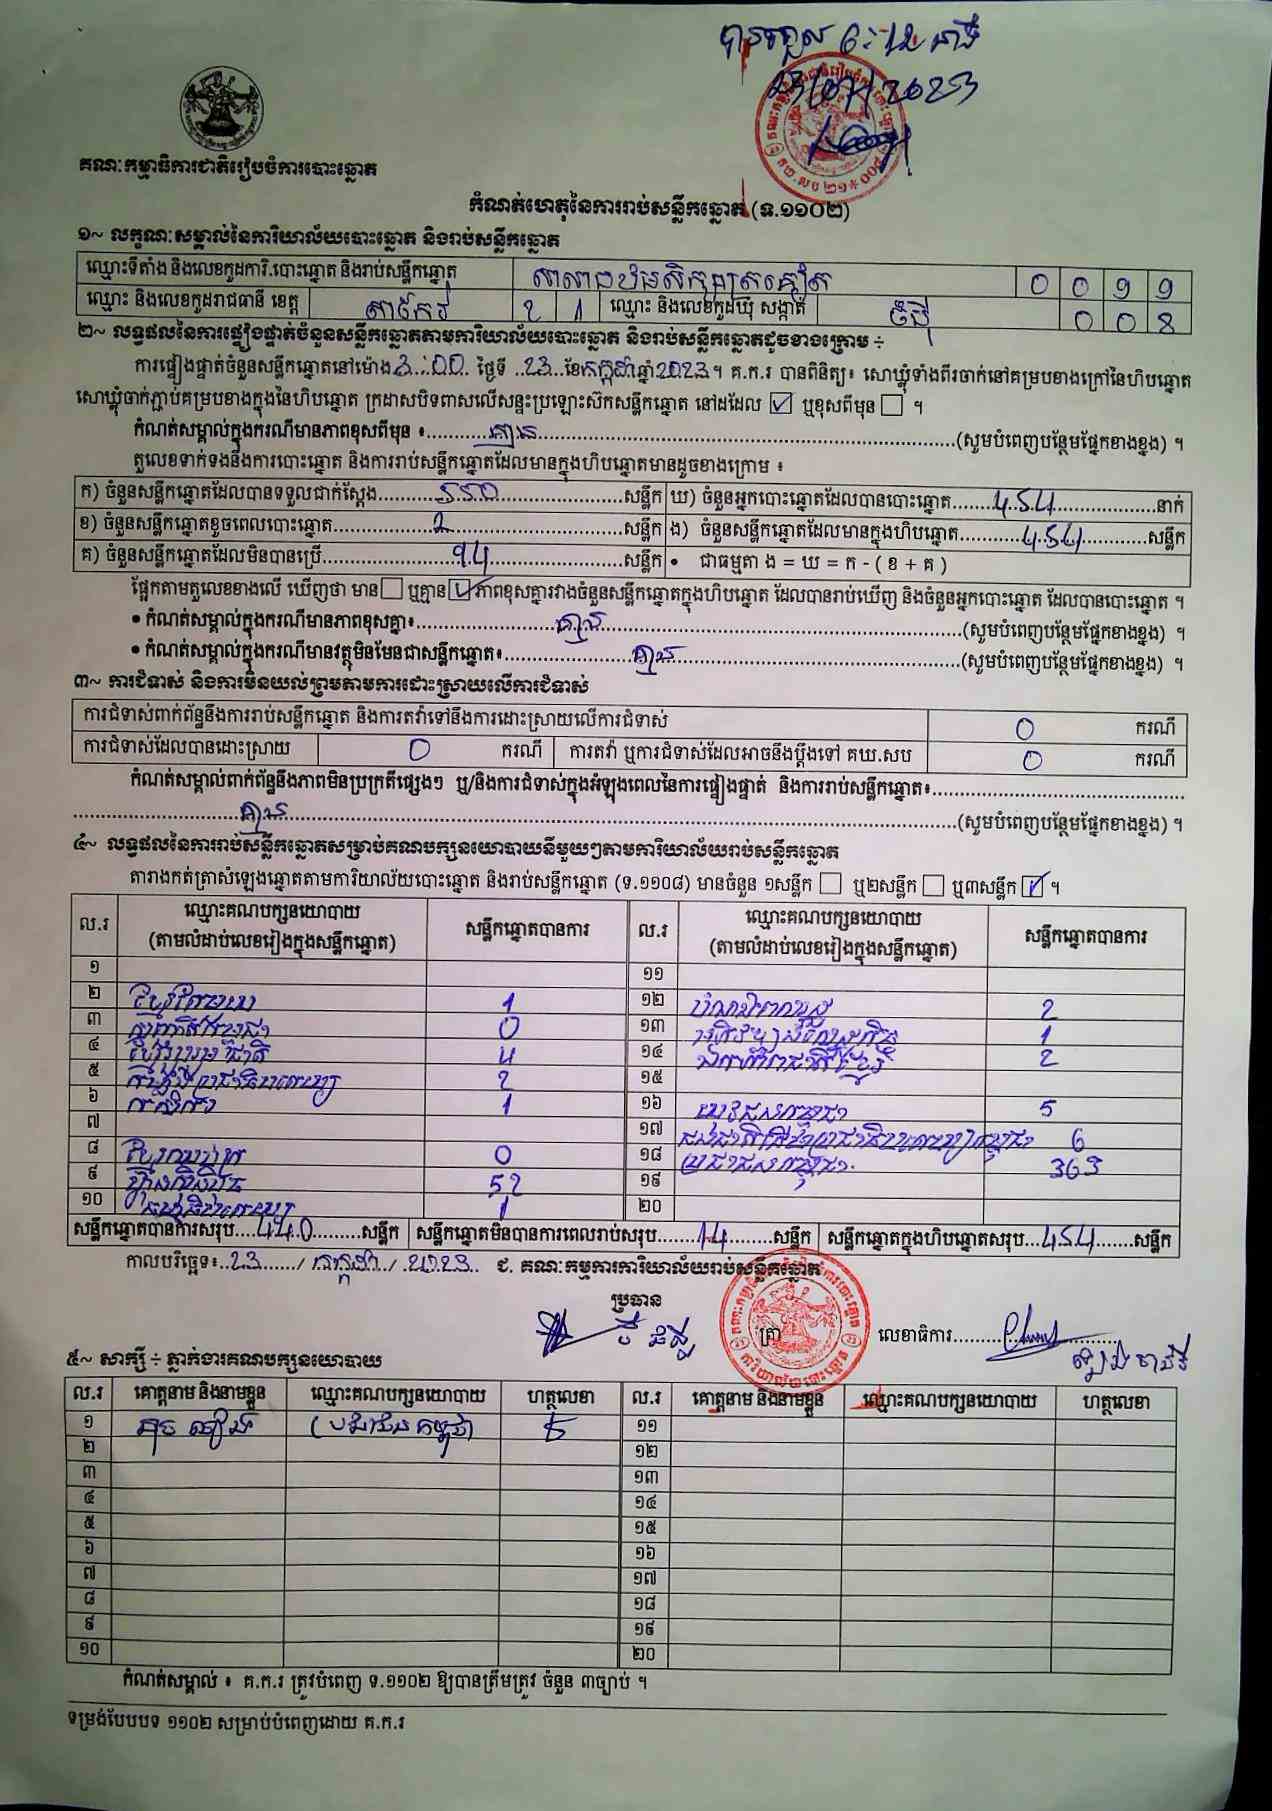 បានទទួល 6:12 នាទី
23/07/2023
គណៈកម្មាធិការជាតិរៀបចំការបោះឆ្នោត
កំណត់ហេតុនៃការរាប់សន្លឹកឆ្នោត (ទ.១១០២)
១~ លក្ខណៈសម្គាល់នៃការិយាល័យបោះឆ្នោត និងរាប់សន្លឹកឆ្នោត
ឈ្មោះទីតាំង និងលេខកូដការិ.បោះឆ្នោត និងរាប់សន្លឹកឆ្នោត 0 0 9 9
ឈ្មោះ និងលេខកូដរាជធានី ខេត្ត តាកែវ 2 1 ឈ្មោះ និងលេខកូដឃុំ សង្កាត់ 0 0 8
២~ លទ្ធផលនៃការផ្ទៀងផ្ទាត់ចំនួនសន្លឹកឆ្នោតតាមការិយាល័យបោះឆ្នោត និងរាប់សន្លឹកឆ្នោតដូចខាងក្រោម ÷
ការផ្ទៀងផ្ទាត់ចំនួនសន្លឹកឆ្នោតនៅម៉ោង3:00 ថ្ងៃទី 23 ខែកក្កដាឆ្នាំ2023។ គ.ក.រ បានពិនិត្យ៖ សោឃ្លុំទាំងពីរចាក់នៅគម្របខាងក្រៅនៃហិបឆ្នោត
សោឃ្លុំចាក់ភ្ជាប់គម្របខាងក្នុងនៃហិបឆ្នោត ក្រដាសបិទពាសលើសន្ទះប្រឡោះស៊កសន្លឹកឆ្នោត នៅដដែល ☑ ឬខុសពីមុន ☐ ។
កំណត់សម្គាល់ក្នុងករណីមានភាពខុសពីមុន ៖ គ្មាន (សូមបំពេញបន្ថែមផ្នែកខាងខ្នង) ។
តួលេខទាក់ទងនឹងការបោះឆ្នោត និងការរាប់សន្លឹកឆ្នោតដែលមានក្នុងហិបឆ្នោតមានដូចខាងក្រោម ៖
ក) ចំនួនសន្លឹកឆ្នោតដែលបានទទួលជាក់ស្តែង 550 សន្លឹក ឃ) ចំនួនអ្នកបោះឆ្នោតដែលបានបោះឆ្នោត 454 នាក់
ខ) ចំនួនសន្លឹកឆ្នោតខូចពេលបោះឆ្នោត 2 សន្លឹក ង) ចំនួនសន្លឹកឆ្នោតដែលមានក្នុងហិបឆ្នោត 454 សន្លឹក
គ) ចំនួនសន្លឹកឆ្នោតដែលមិនបានប្រើ 94 សន្លឹក • ជាធម្មតា ង = ឃ = ក - ( ខ + គ )
ផ្អែកតាមតួលេខខាងលើ ឃើញថា មាន ☐ ឬគ្មាន ☑ ភាពខុសគ្នារវាងចំនួនសន្លឹកឆ្នោតក្នុងហិបឆ្នោត ដែលបានរាប់ឃើញ និងចំនួនអ្នកបោះឆ្នោត ដែលបានបោះឆ្នោត ។
• កំណត់សម្គាល់ក្នុងករណីមានភាពខុសគ្នា៖ គ្មាន (សូមបំពេញបន្ថែមផ្នែកខាងខ្នង) ។
• កំណត់សម្គាល់ក្នុងករណីមានវត្ថុមិនមែនជាសន្លឹកឆ្នោត៖ គ្មាន (សូមបំពេញបន្ថែមផ្នែកខាងខ្នង) ។
៣~ ការជំទាស់ និងការមិនយល់ព្រមតាមការដោះស្រាយលើការជំទាស់
ការជំទាស់ពាក់ព័ន្ធនឹងការរាប់សន្លឹកឆ្នោត និងការតវ៉ាទៅនឹងការដោះស្រាយលើការជំទាស់ 0 ករណី
ការជំទាស់ដែលបានដោះស្រាយ 0 ករណី ការតវ៉ា ឬការជំទាស់ដែលអាចនឹងប្តឹងទៅ គឃ.សប 0 ករណី
កំណត់សម្គាល់ពាក់ព័ន្ធនឹងភាពមិនប្រក្រតីផ្សេងៗ ឬ/និងការជំទាស់ក្នុងអំឡុងពេលនៃការផ្ទៀងផ្ទាត់ និងការរាប់សន្លឹកឆ្នោត៖
គ្មាន (សូមបំពេញបន្ថែមផ្នែកខាងខ្នង) ។
៤~ លទ្ធផលនៃការរាប់សន្លឹកឆ្នោតសម្រាប់គណបក្សនយោបាយនីមួយៗតាមការិយាល័យរាប់សន្លឹកឆ្នោត
តារាងកត់ត្រាសំឡេងឆ្នោតតាមការិយាល័យបោះឆ្នោត និងរាប់សន្លឹកឆ្នោត (ទ.១១០៨) មានចំនួន ១សន្លឹក ☐ ឬ២សន្លឹក ☐ ឬ៣សន្លឹក ☑ ។
ល.រ ឈ្មោះគណបក្សនយោបាយ សន្លឹកឆ្នោតបានការ ល.រ ឈ្មោះគណបក្សនយោបាយ សន្លឹកឆ្នោតបានការ
(តាមលំដាប់លេខរៀងក្នុងសន្លឹកឆ្នោត) (តាមលំដាប់លេខរៀងក្នុងសន្លឹកឆ្នោត)
១ ១១
២ ខ្មែរតែមួយ 1 ១២ 2
៣ 0 ១៣ 1
៤ ខ្មែររួបរួមជាតិ 4 ១៤ ឯកភាពជាតិខ្មែរ 2
៥ កម្លាំងប្រជាធិបតេយ្យ 2 ១៥
៦ កសិករ 1 ១៦ យុវជនកម្ពុជា 5
៧ ១៧ 6
៨ 0 ១៨ ប្រជាជនកម្ពុជា 363
៩ ហ្វ៊ុនស៊ិនប៉ិច 52 ១៩
១០ 1 ២០
សន្លឹកឆ្នោតបានការសរុប 440 សន្លឹក សន្លឹកឆ្នោតមិនបានការពេលរាប់សរុប 14 សន្លឹក សន្លឹកឆ្នោតក្នុងហិបឆ្នោតសរុប 454 សន្លឹក
កាលបរិច្ឆេទ៖ 23 / កក្កដា / 2023 ជ. គណៈកម្មការការិយាល័យរាប់សន្លឹកឆ្នោត
ប្រធាន
ត្រា លេខាធិការ
៥~ សាក្សី ÷ ភ្នាក់ងារគណបក្សនយោបាយ
ល.រ គោត្តនាម និងនាមខ្លួន ឈ្មោះគណបក្សនយោបាយ ហត្ថលេខា ល.រ គោត្តនាម និងនាមខ្លួន ឈ្មោះគណបក្សនយោបាយ ហត្ថលេខា
១ ប្រជាជនកម្ពុជា ១១
២ ១២
៣ ១៣
៤ ១៤
៥ ១៥
៦ ១៦
៧ ១៧
៨ ១៨
៩ ១៩
១០ ២០
កំណត់សម្គាល់ ៖ គ.ក.រ ត្រូវបំពេញ ទ.១១០២ ឱ្យបានត្រឹមត្រូវ ចំនួន ៣ច្បាប់ ។
ទម្រង់បែបបទ ១១០២ សម្រាប់បំពេញដោយ គ.ក.រ